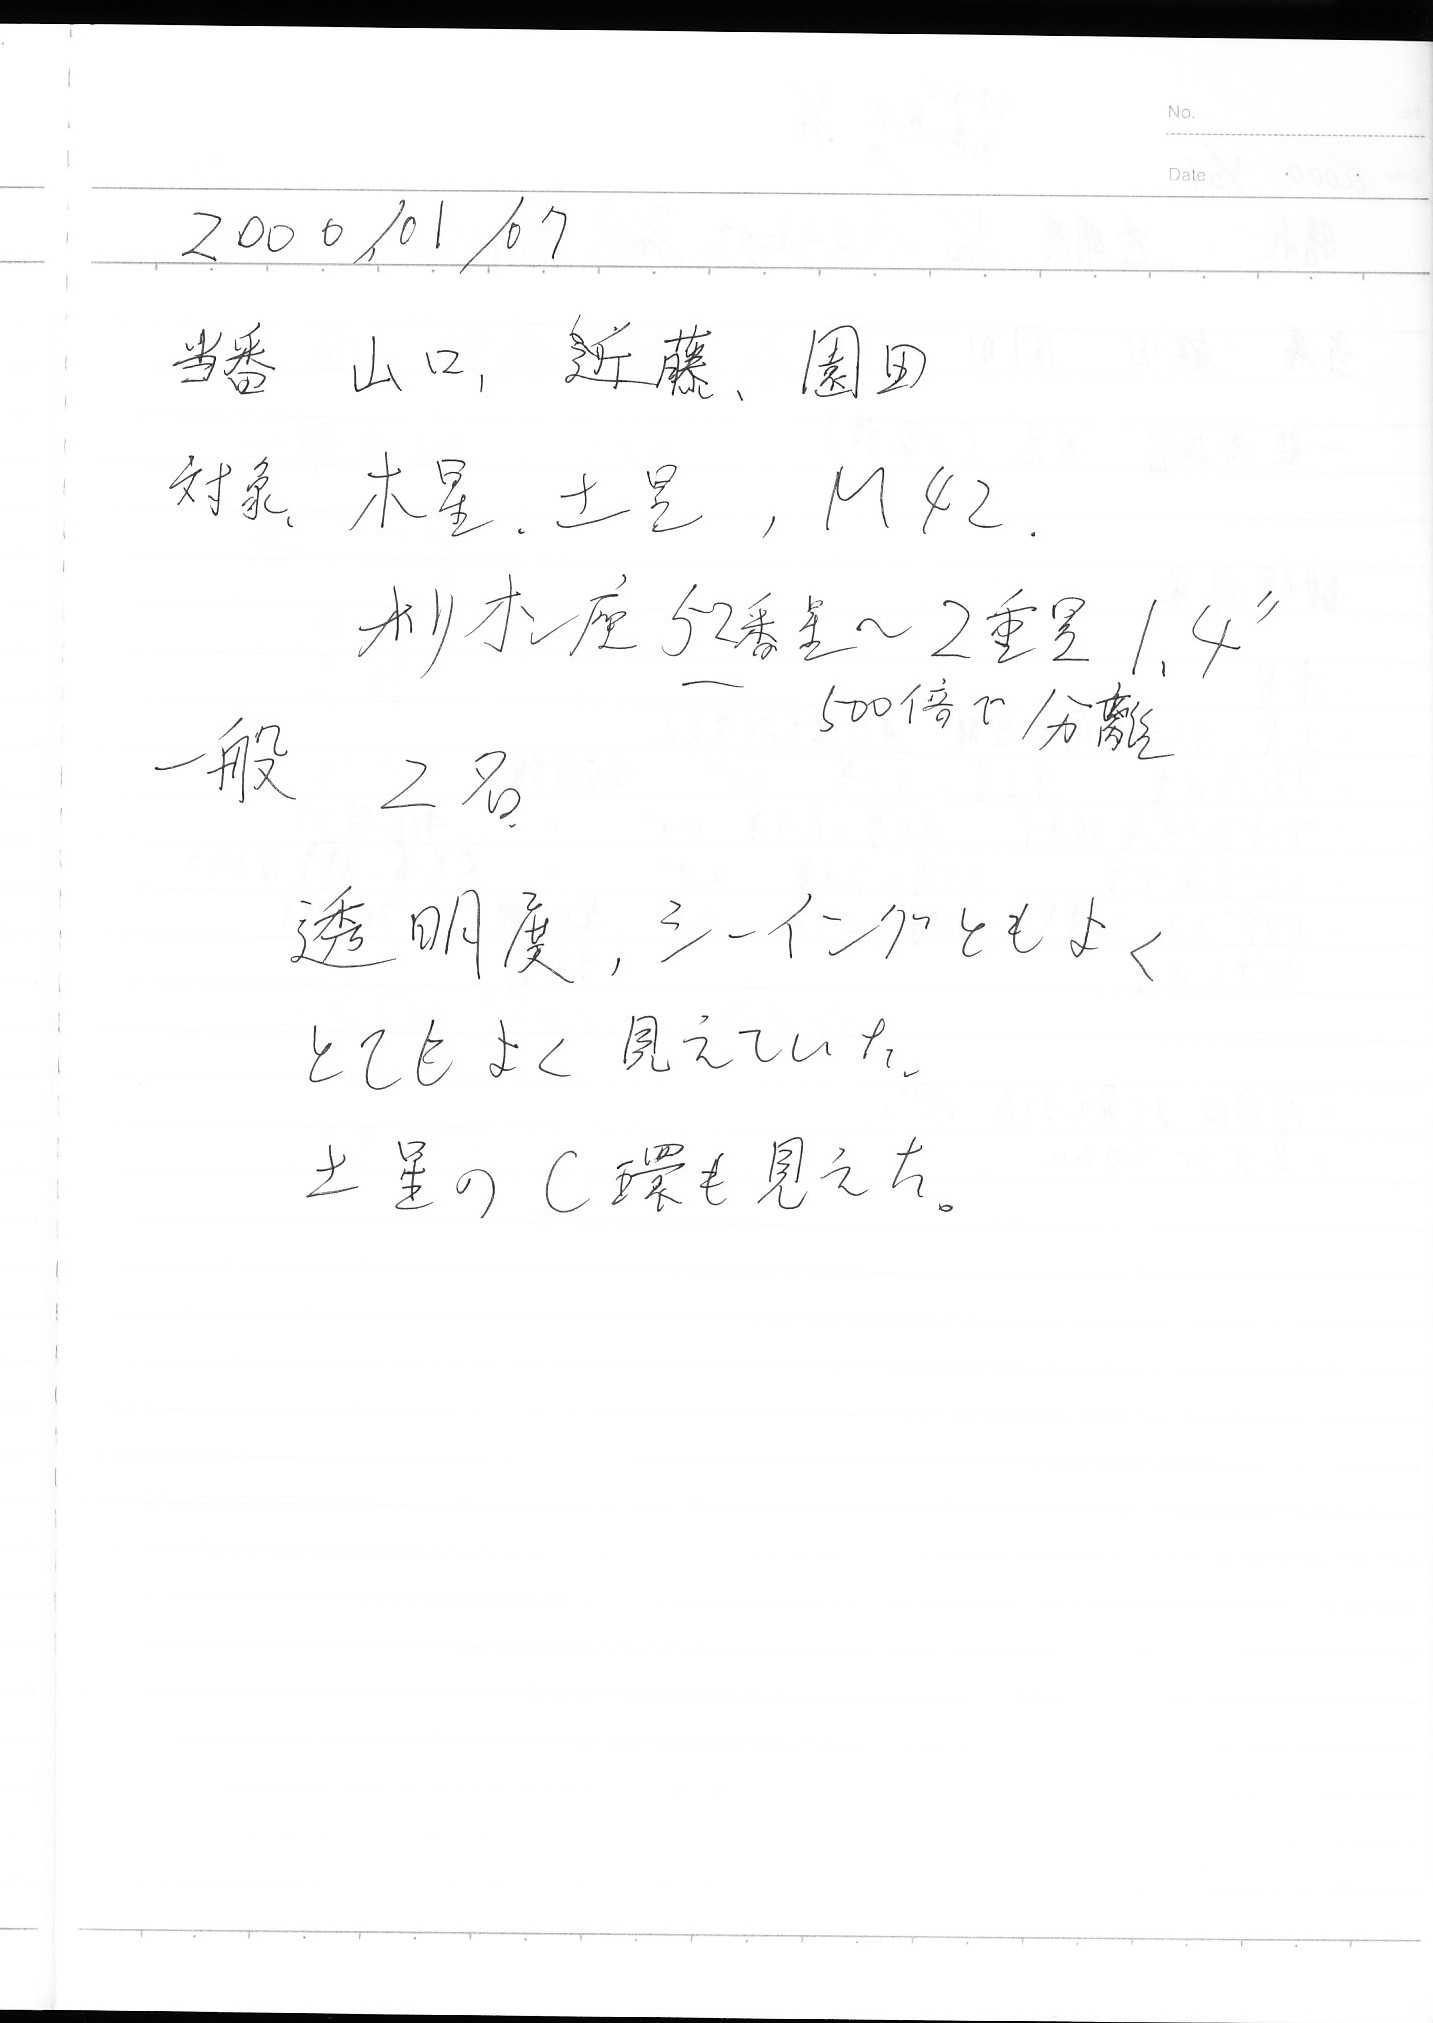 No.
Date
2000/01/07
当番 山口, 近藤、園田
対象、木星、土星, M42.
オリオン座52番星〜2重星 1.4″
500倍で分離
一般 2名
透明度, シーイングともよく
とてもよく見えていた。
土星のC環も見えた。